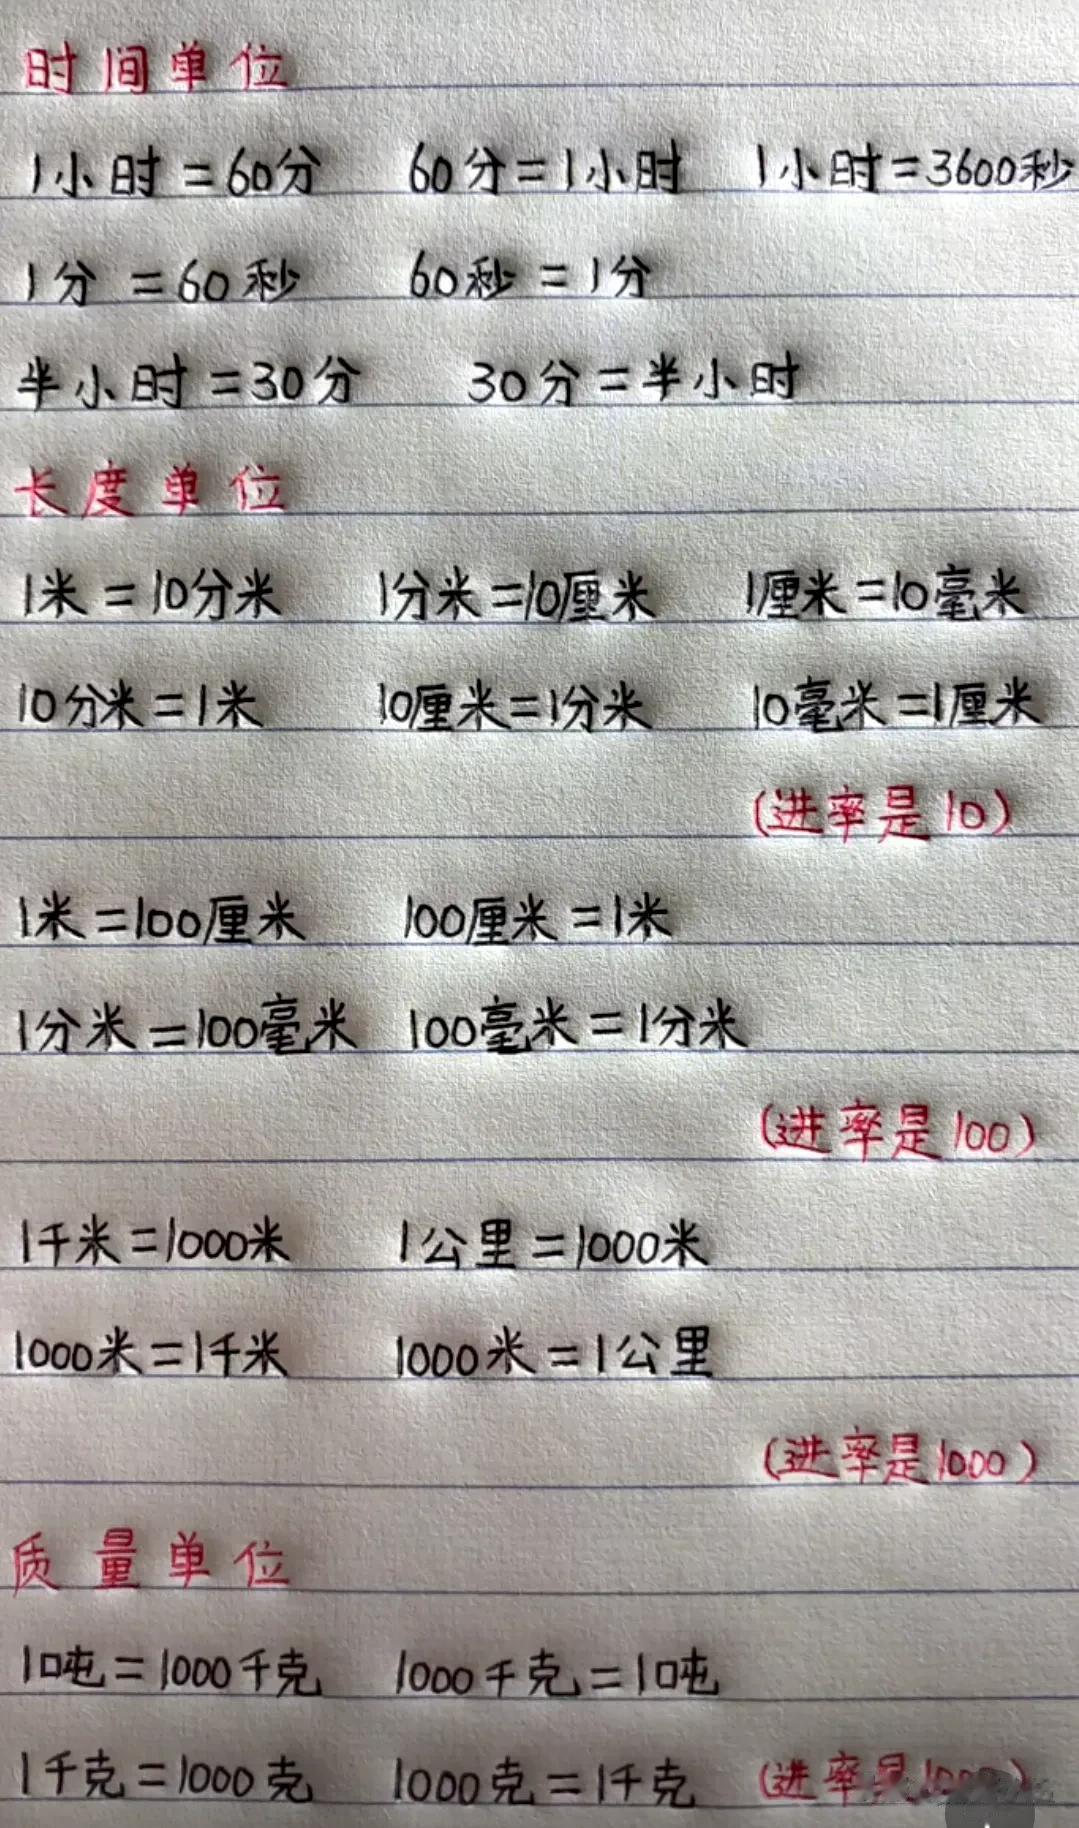 时间单位
1小时=60分 60分=1小时 1小时=3600秒
1分=60秒 60秒=1分
半小时=30分 30分=半小时
长度单位
1米=10分米 1分米=10厘米 1厘米=10毫米
10分米=1米 10厘米=1分米 10毫米=1厘米
(进率是10)
1米=100厘米 100厘米=1米
1分米=100毫米 100毫米=1分米
(进率是100)
1千米=1000米 1公里=1000米
1000米=1千米 1000米=1公里
(进率是1000)
质量单位
1吨=1000千克 1000千克=1吨
1千克=1000克 1000克=1千克 (进率是1000)